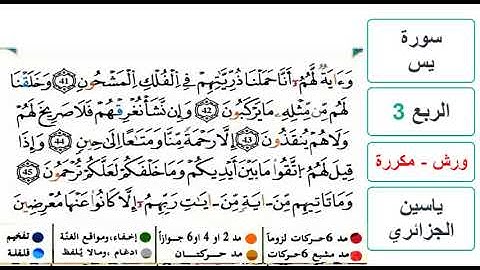 سورة
يس
الربع 3
ورش - مكررة
ياسين
الجزائري
وَءَايَةٌ لَّهُمُۥٓ أَنَّا حَمَلْنَا ذُرِّيَّٰتِهِمْ فِي اِلْفُلْكِ اِلْمَشْحُونِ 41 وَخَلَقْنَا
لَهُم مِّن مِّثْلِهِۦ مَا يَرْكَبُونَ 42 وَإِن نَّشَأْ نُغْرِقْهُمْ فَلَا صَرِيخَ لَهُمْ
وَلَا هُمْ يُنقَذُونَ 43 إِلَّا رَحْمَةً مِّنَّا وَمَتَٰعًا إِلَىٰ حِينٍ 44 وَإِذَا
قِيلَ لَهُمُ اُتَّقُوا مَا بَيْنَ أَيْدِيكُمْ وَمَا خَلْفَكُمْ لَعَلَّكُمْ تُرْحَمُونَ 45
وَمَا تَاتِيهِم مِّنَ ايَةٍ مِّنَ ايَٰتِ رَبِّهِمُۥٓ إِلَّا كَانُوا عَنْهَا مُعْرِضِينَ
مد 6 حركات لزوماً مد 2 او 4 او 6 جوازاً إخفاء، ومواقع الغنّة تفخيم
مد مشبع 6 حركات مد حركتان ادغام، ومالا يلفظ قلقلة